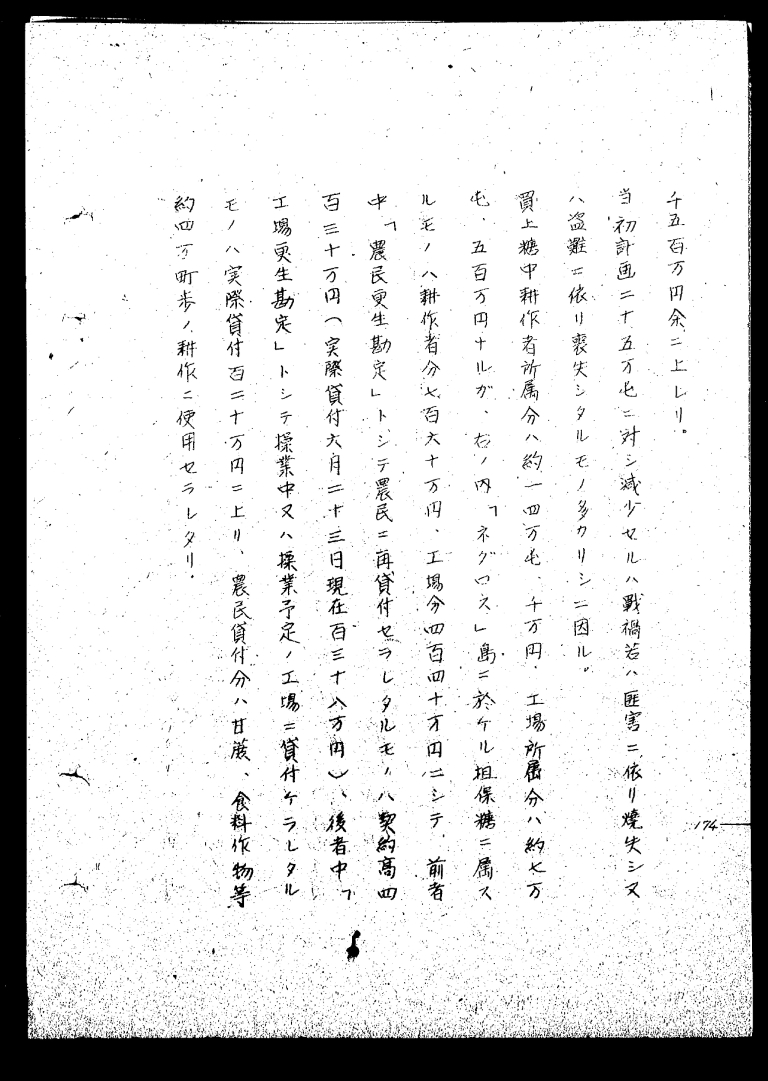 千五百万円余ニ上レリ。
当初計画二十五万屯ニ対シ減少セルハ戰禍若ハ匪害ニ依リ燒失シ又
ハ盗難ニ依リ喪失シタルモノ多カリシニ因ル。
買上糖中耕作者所属分ハ約一四万屯、千万円、工場所属分ハ約七万
屯、五百万円ナルガ、右ノ内「ネグロス」島ニ於ケル担保糖ニ属ス
ルモノハ耕作者分七百六十万円、工場分四百四十万円ニシテ、前者
中「農民更生勘定」トシテ農民ニ再貸付セラレタルモノハ契約高四
百三十万円（実際貸付六月二十三日現在百三十八万円）、後者中「
工場更生勘定」トシテ操業中又ハ操業予定ノ工場ニ貸付ケラレタル
モノハ実際貸付百二十万円ニ上リ、農民貸付分ハ甘蔗、食料作物等
約四万町歩ノ耕作ニ使用セラレタリ。
174